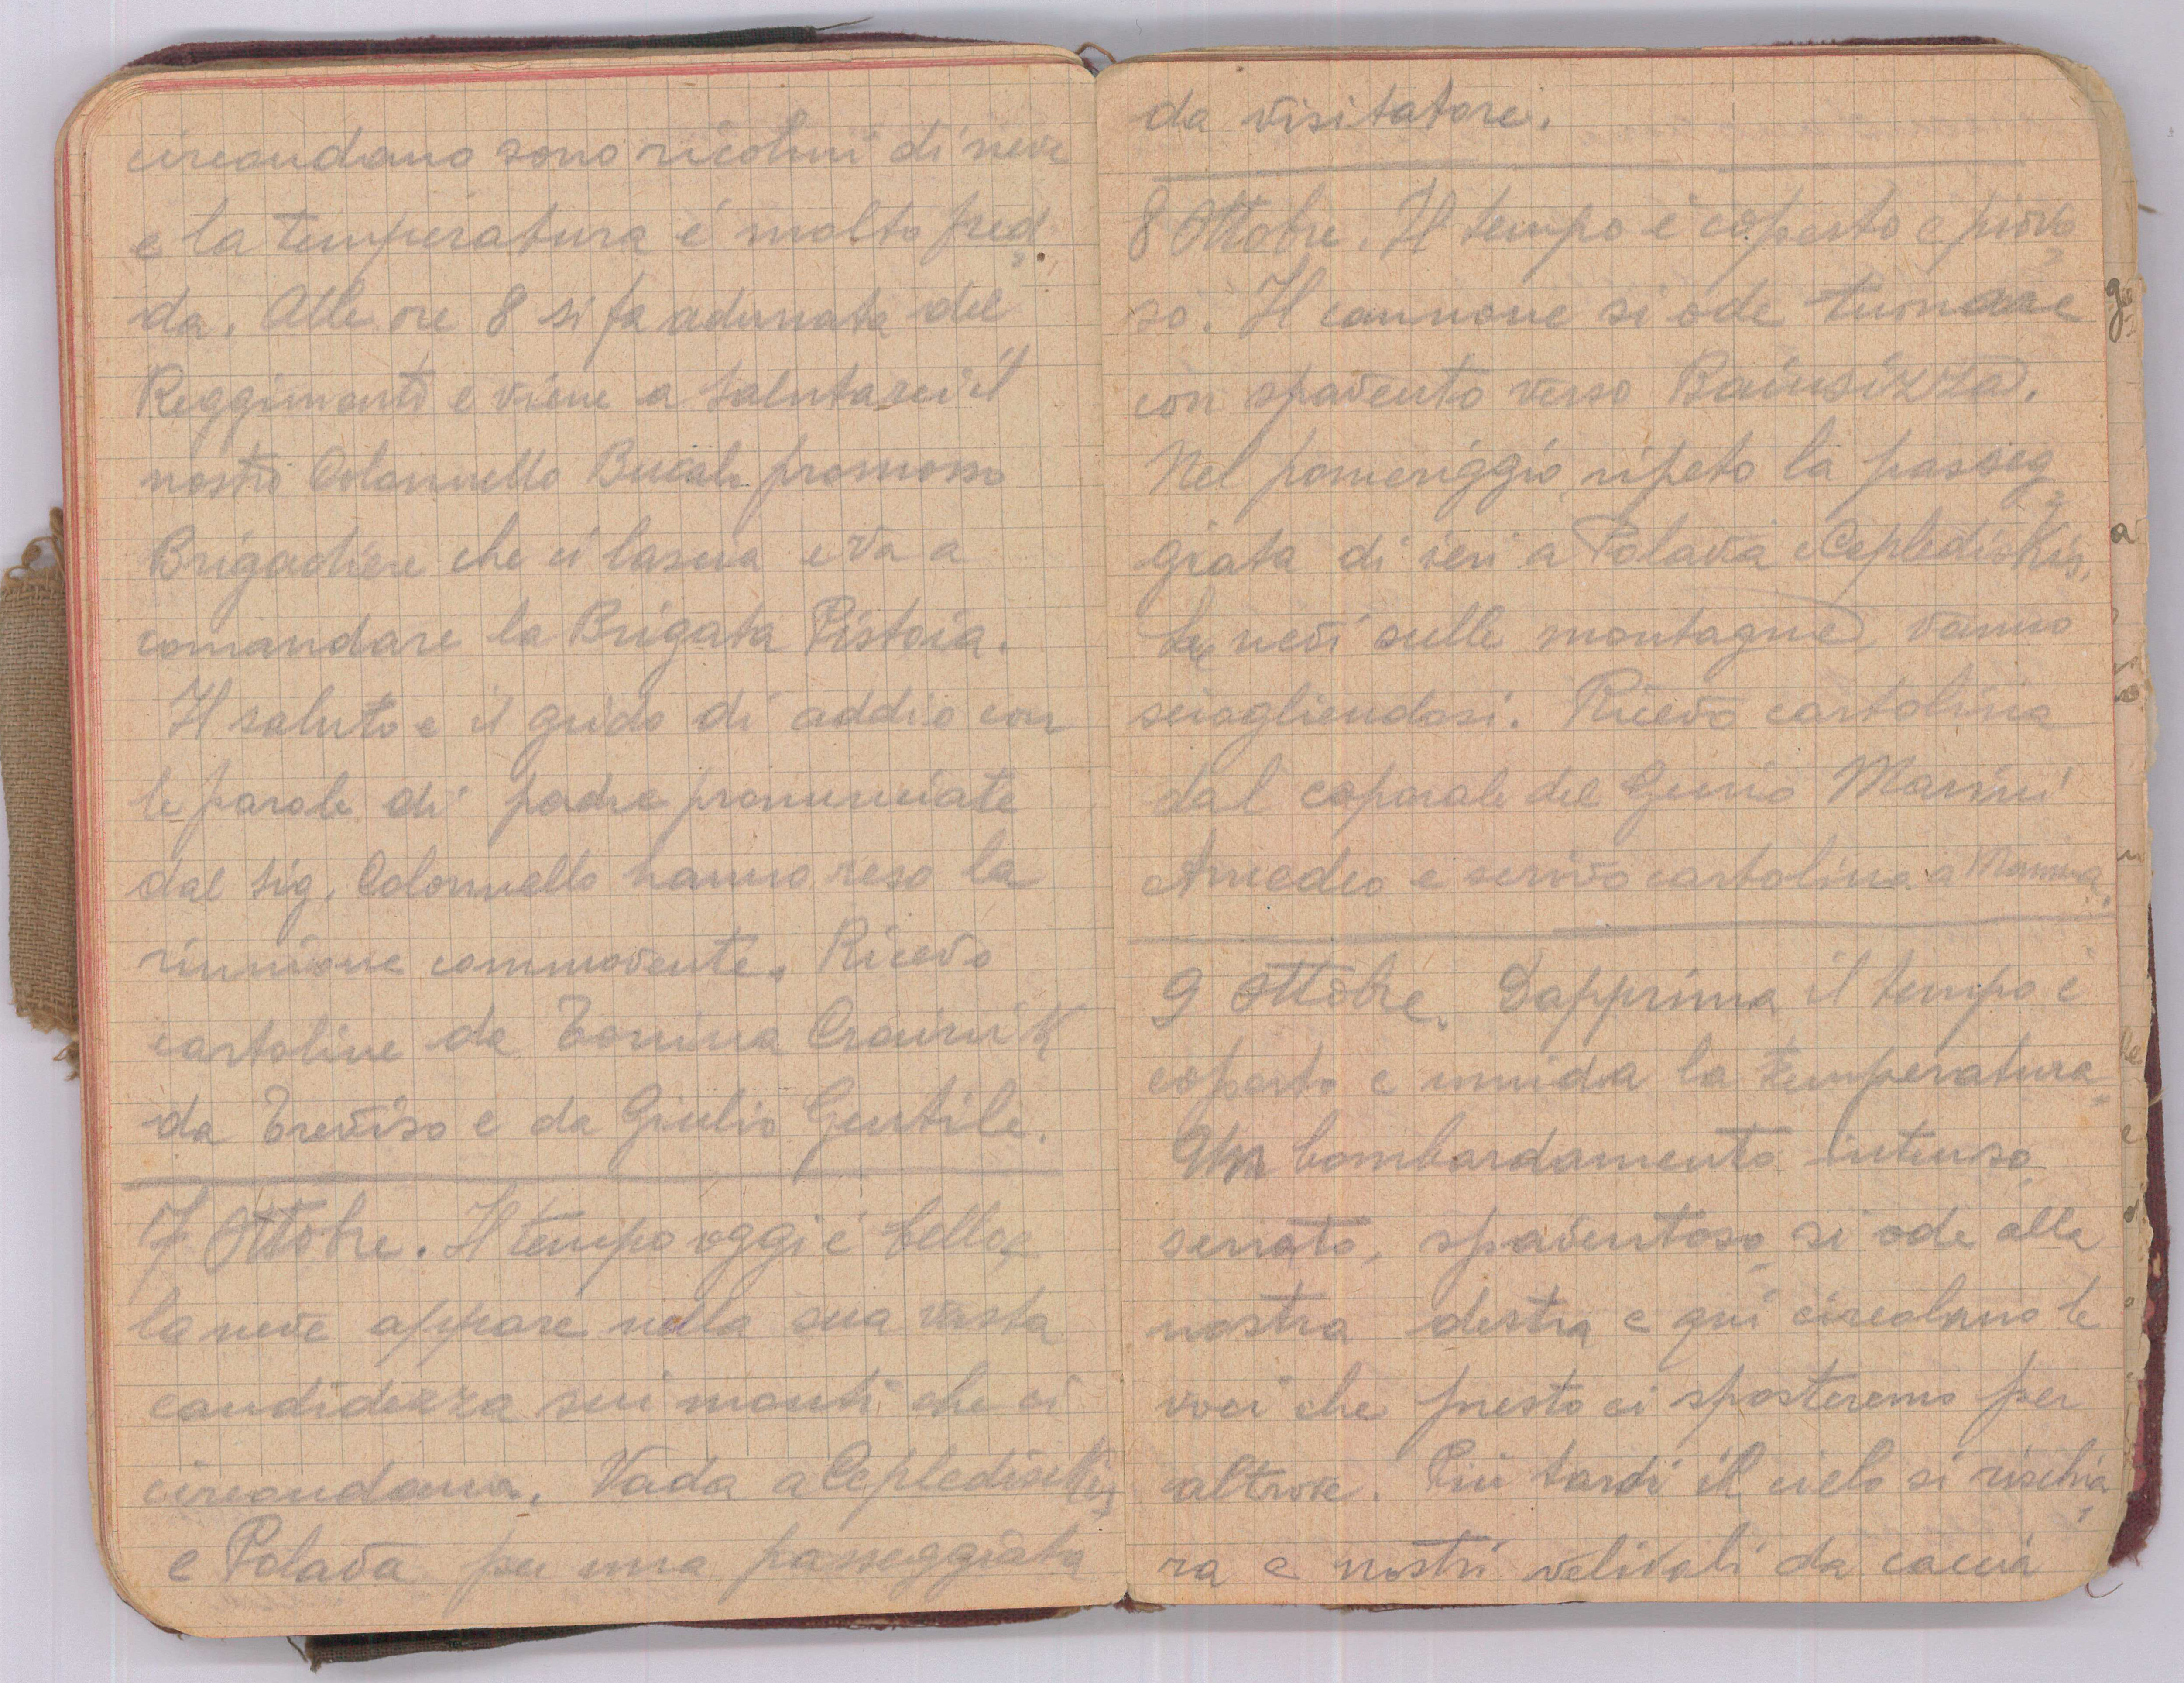 circondano sono ricolmi di neve
e la temperatura é molto fred=
da. Alle ore 8 si fa adunata del
Reggimento e viene a salutarci il
nostro Colonnello promosso
Brigadiere che ci lascia e va a
comandare la Brigata Pistoia.
Il saluto e il grido di addio con
le parole di padre pronunciate
dal sig. Colonnello hanno reso la
riunione commovente. Ricevo
cartoline da Tonina Crainik
da Treviso e da Giulio Gentile.
7 Ottobre. Il tempo oggi é bello e
la neve appare nella sua vasta
candidezza sui monti che ci
circondano. Vado a Cepledischis
e Polava per una passeggiata
da visitatore.
8 Ottobre. Il tempo é coperto e piovo=
so. Il cannone si ode tuonare
con spavento verso Bainsizza.
Nel pomeriggio ripeto la passeg=
giata di ieri a Polava e Cepledischis.
Le nevi sulle montagne vanno
sciogliendosi. Ricevo cartolina
dal caporale del Genio Marini
Amedeo e scrivo cartolina a Mamma.
9 Ottobre. Dapprima il tempo é
coperto e umida la temperatura.
Un bombardamento intenso
serrato, spaventoso si ode alla
nostra destra e qui circolano le
voci che presto ci sposteremo per
altrove. Più tardi il cielo si rischia=
ra e nostri velivoli da caccia